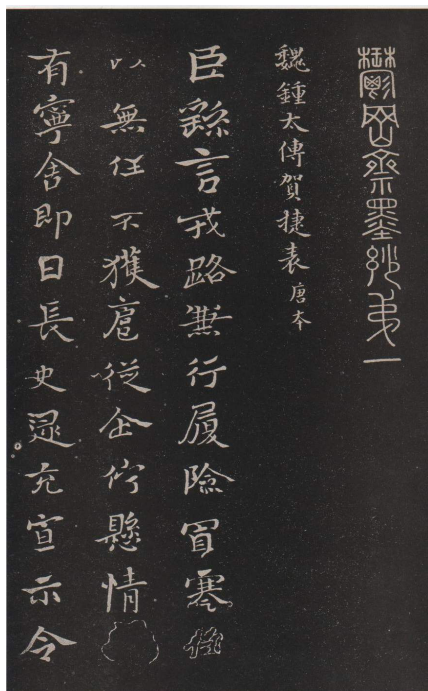 鬱岡齋墨妙第一
魏鍾太傅賀捷表唐本
臣繇言戎路兼行履險冒寒臣
以無任不獲扈從企佇懸情
有寧舍即日長史逯充宣示令